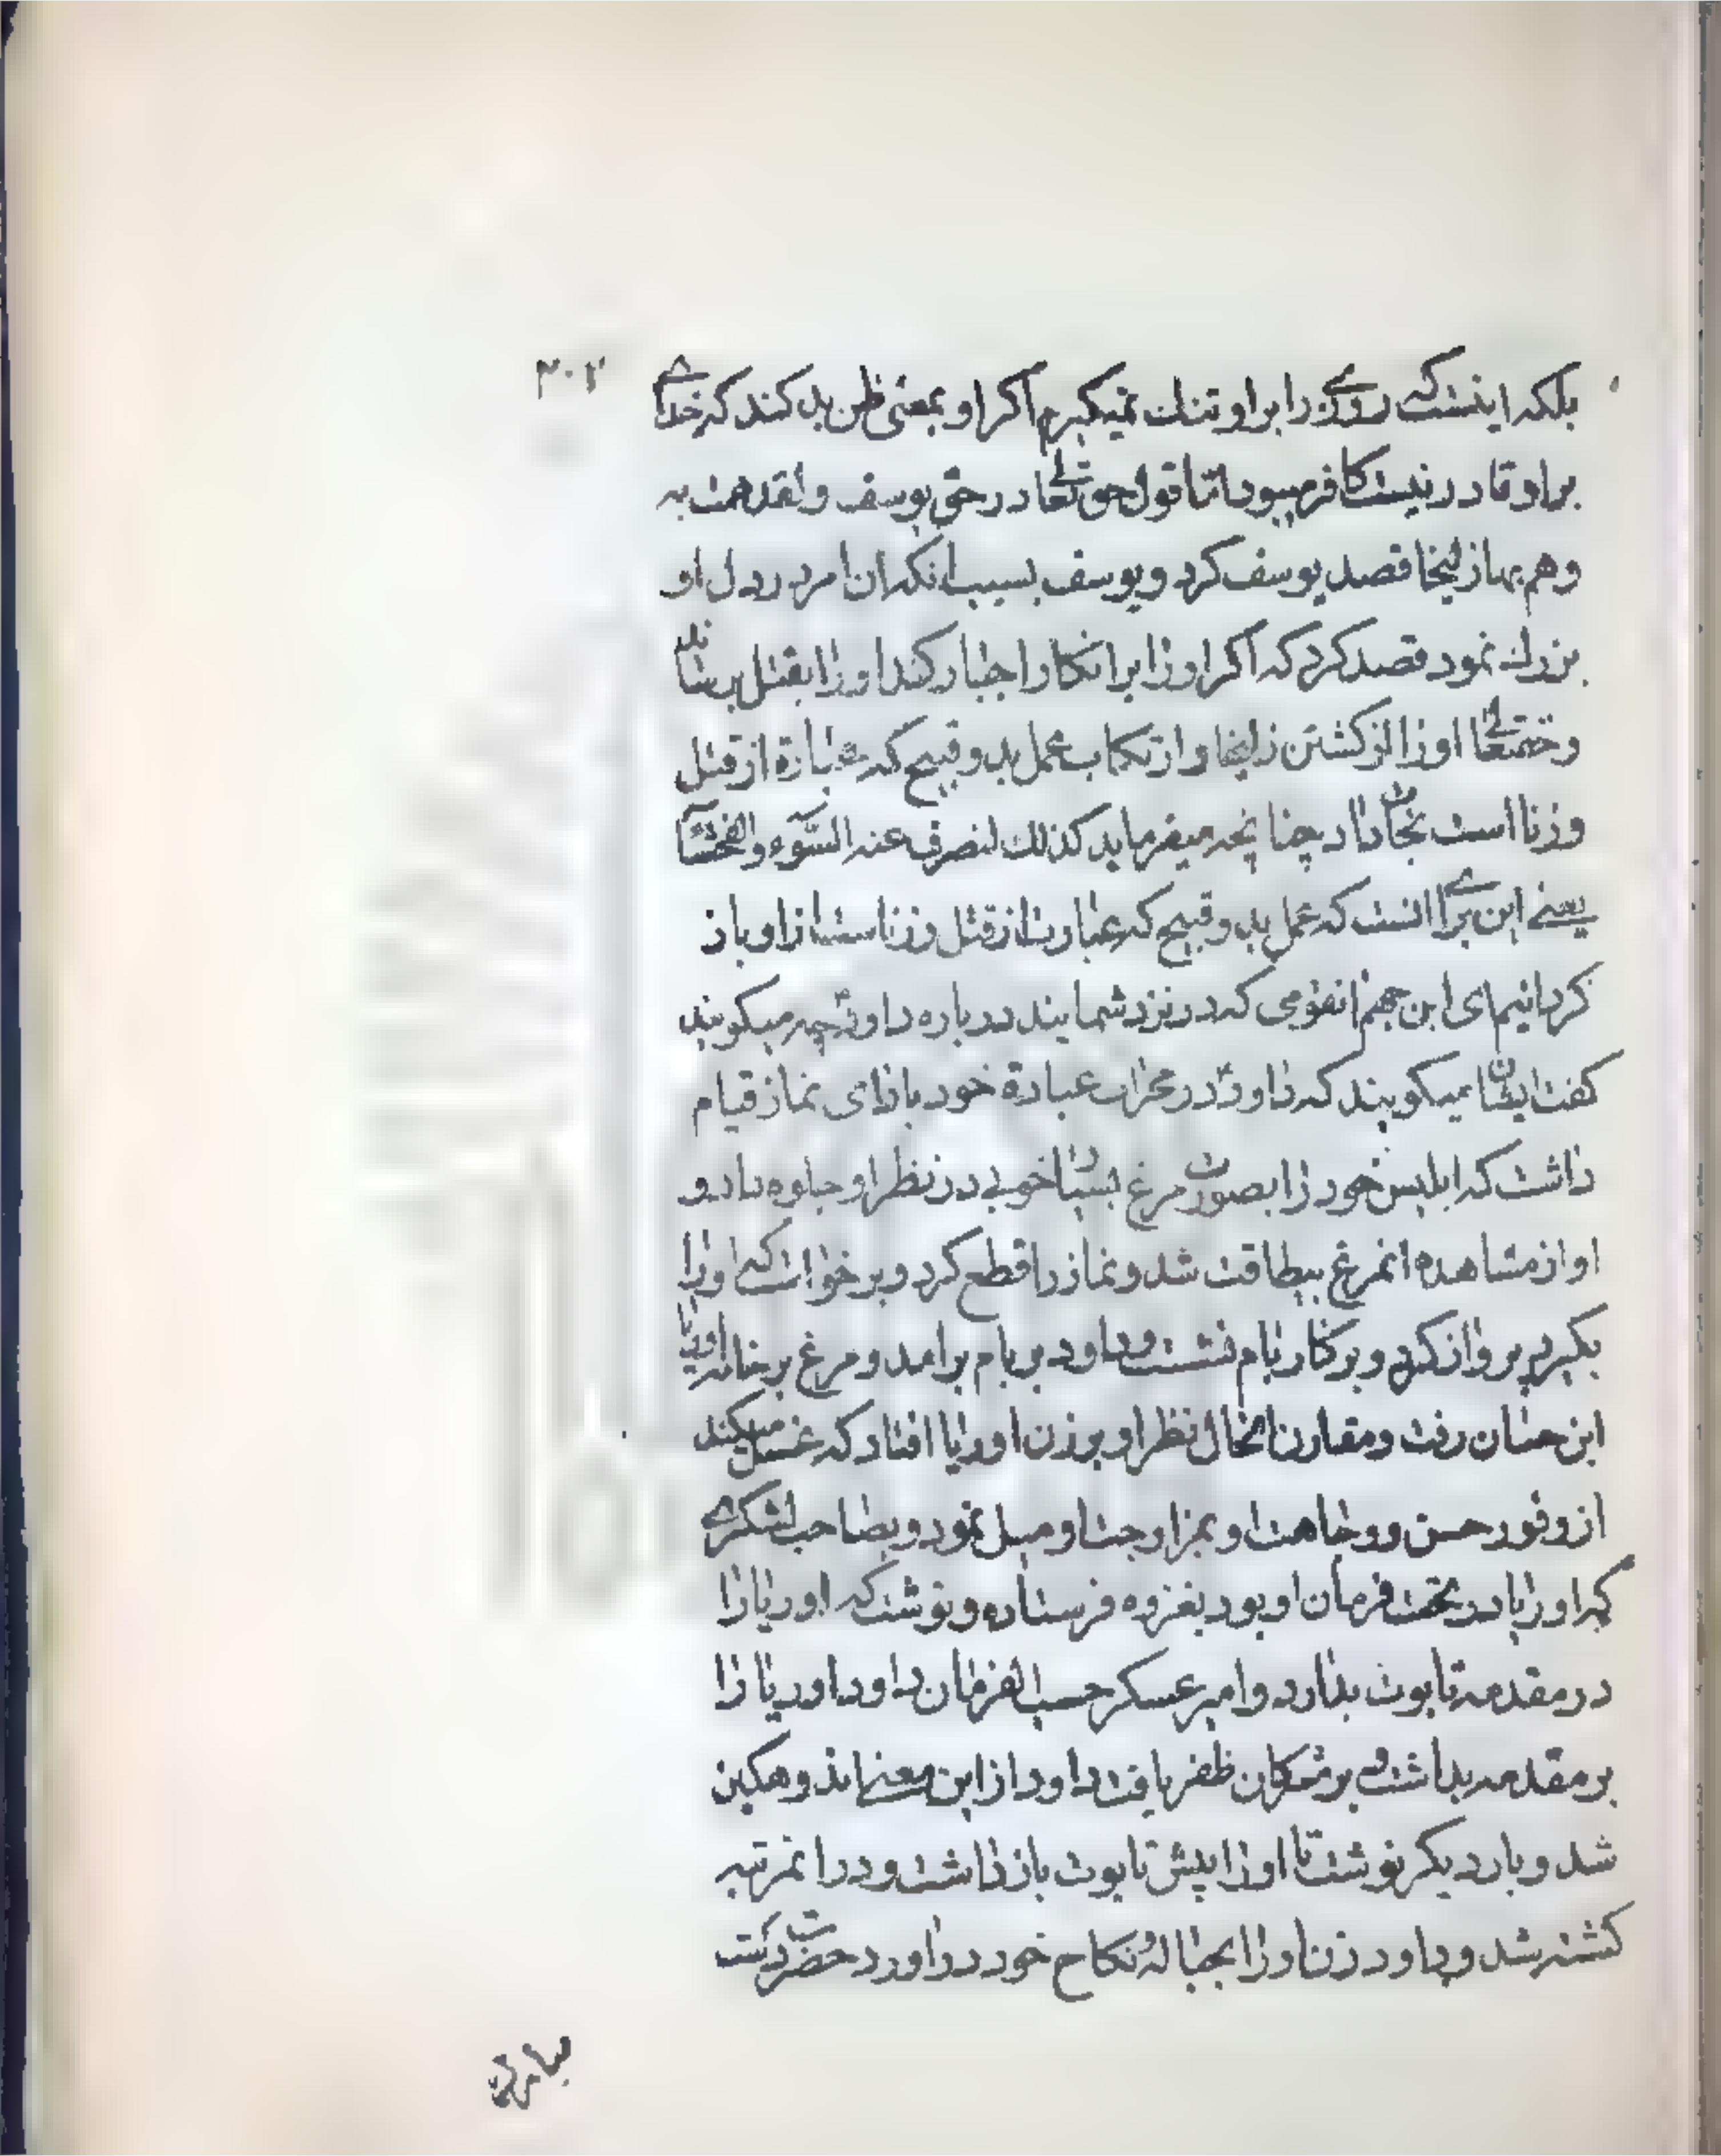 ۳۰۲
بلکه اینست که روزی را بر او تنك نمیکیریم اکر او بمعنی ظن بد کند که خدای
بر او قادر نیست کافر میبود اما قول حق تعالی در حق یوسف ولقد همت به
وهم بها زلیخا قصد یوسف کرد و یوسف بسبب انکه ان امر در دل او
بزرك نمود قصد کرد که اکر او را بر انکار اجبار کند او را بقتل برساند
وحقتعالی او را از کشتن زلیخا و ارتکاب عمل بد و قبیح که عبارة از قتل
و زنا است نجات داد چنانچه میفرماید کذلك لنصرف عنه السوء والفحشآ
یعنے این برای انست که عمل بد و قبیح که عبارت از قتل و زناست از او باز
کردانیم ای ابن جهم انقومی که در نزد شمایند در باره داود چه میکویند
کفت ایشان میکویند که داود در محراب عبادة خود بادای نماز قیام
داشت که ابلیس خود را بصورت مرغ بسیار خوبی در نظر او جلوه داد و
او از مشاهده انمرغ بیطاقت شد و نماز را قطع کرد و برخواست که او را
بکیرد پرواز کرد و بر کنار بام نشست و داود بر بام برامد و مرغ بر خانه اوریا
ابن حنان رفت و مقارن انحال نظر او بر زن اوریا افتاد که غسل میکند
از وفور حسن و وجاهت او بمزاوجت او میل نمود و بصاحب لشکری
که اوریا در تحت فرمان او بود بغزوه فرستاده و نوشت که اوریا را
در مقدمه تابوت بدارد و امیر عسکر حسب الفرمان داود اوریا را
بر مقدمه بداشت و بر مشرکان ظفر یافت داود از این معنے اندوهکین
شد و بار دیکر نوشت تا او را پیش تابوت باز داشت و در انمرتبه
کشته شد و داود زن او را بحباله نکاح خود در اورد حضرت دست